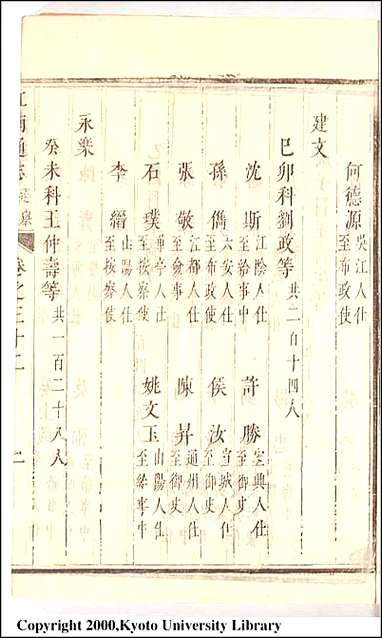 何德源 吳江人仕至布政使
建文
巳卯科劉政等 共二百十四人
沈斯 江陰人仕至給事中 許勝 宜興人仕至御史
孫儁 六安人仕至布政使 侯汝 宣城人仕至御史
張敬 江都人仕至僉事 陳昇 通州人仕至御史
石璞 華亭人仕至按察使 姚文玉 山陽人仕至給事中
李縉 山陽人仕至按察使
永樂
癸未科王仲壽等 共一百二十八人
江南通志 選舉 卷之三十二
Copyright 2000,Kyoto University Library